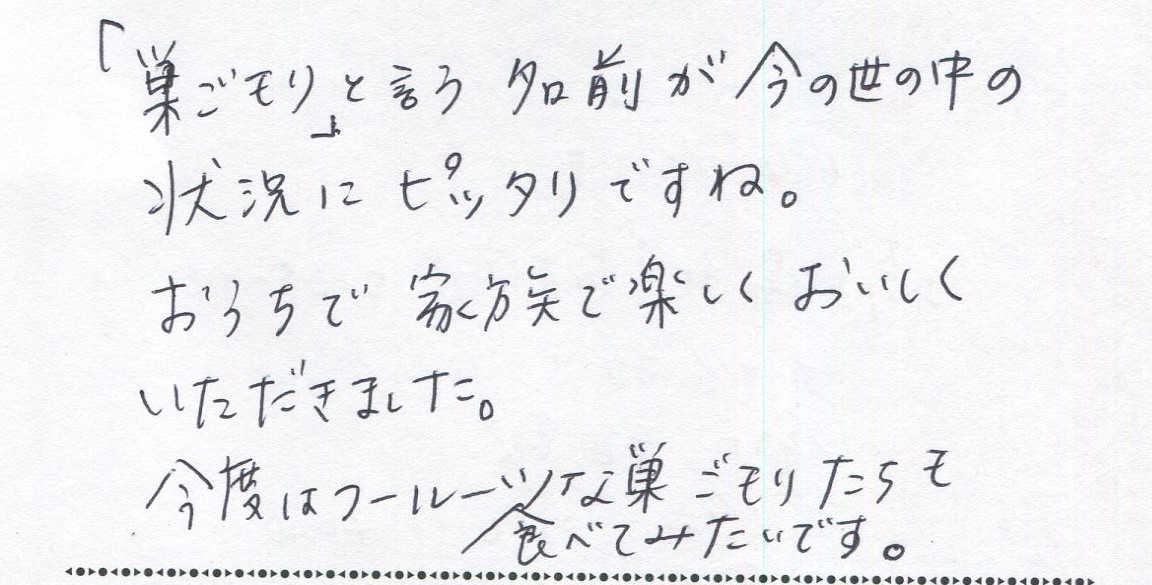 「巣ごモリ」と言う名前が今の世の中の
状況にピッタリですね。
おうちで家族で楽しくおいしく
いただきました。
今度はフールーツな巣ごモリたちも
食べてみたいです。